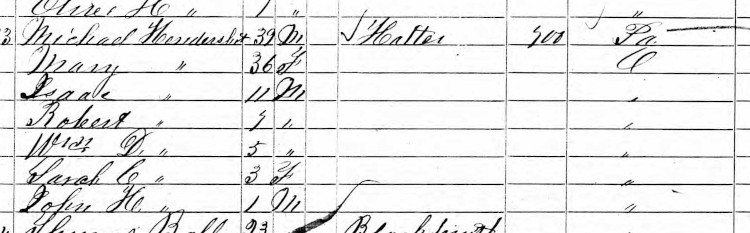 Oliver H " 1 " "
3 Michael Hendershot 39 M Hatter 700 Pa
Mary " 36 F O
Isaac " 11 M "
Robert " 7 " "
Wm D. " 5 " "
Sarah C " 3 F "
John H " 1 M "
Ball 23 Blacksmith